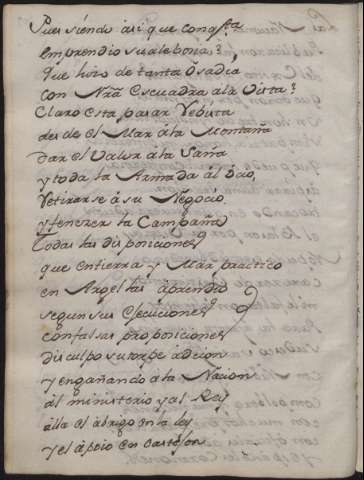 Pues siendo asi que conq.ta
Emprendio su alebosia?
que hizo de tanta Osadia
con Nrâ Escuadra âla Vista?
Claro esta pasar Rebista
desde el Mar âla Montaña
dar el Valor âla Saña
y toda la Armada âl Ocio,
Retirarse â su Negocio
y fenezer la Campaña
Todas las disposiciones
que en tierra y Mar practico
en Argel las aprendio
segun sus Ejecuciones
con falsas proposiciones
disculpo su torpe adicion
y engañando âla Nacion
âl ministerio y al Rey
alla el âbrigo en la ley
y el âpoio en Castejon